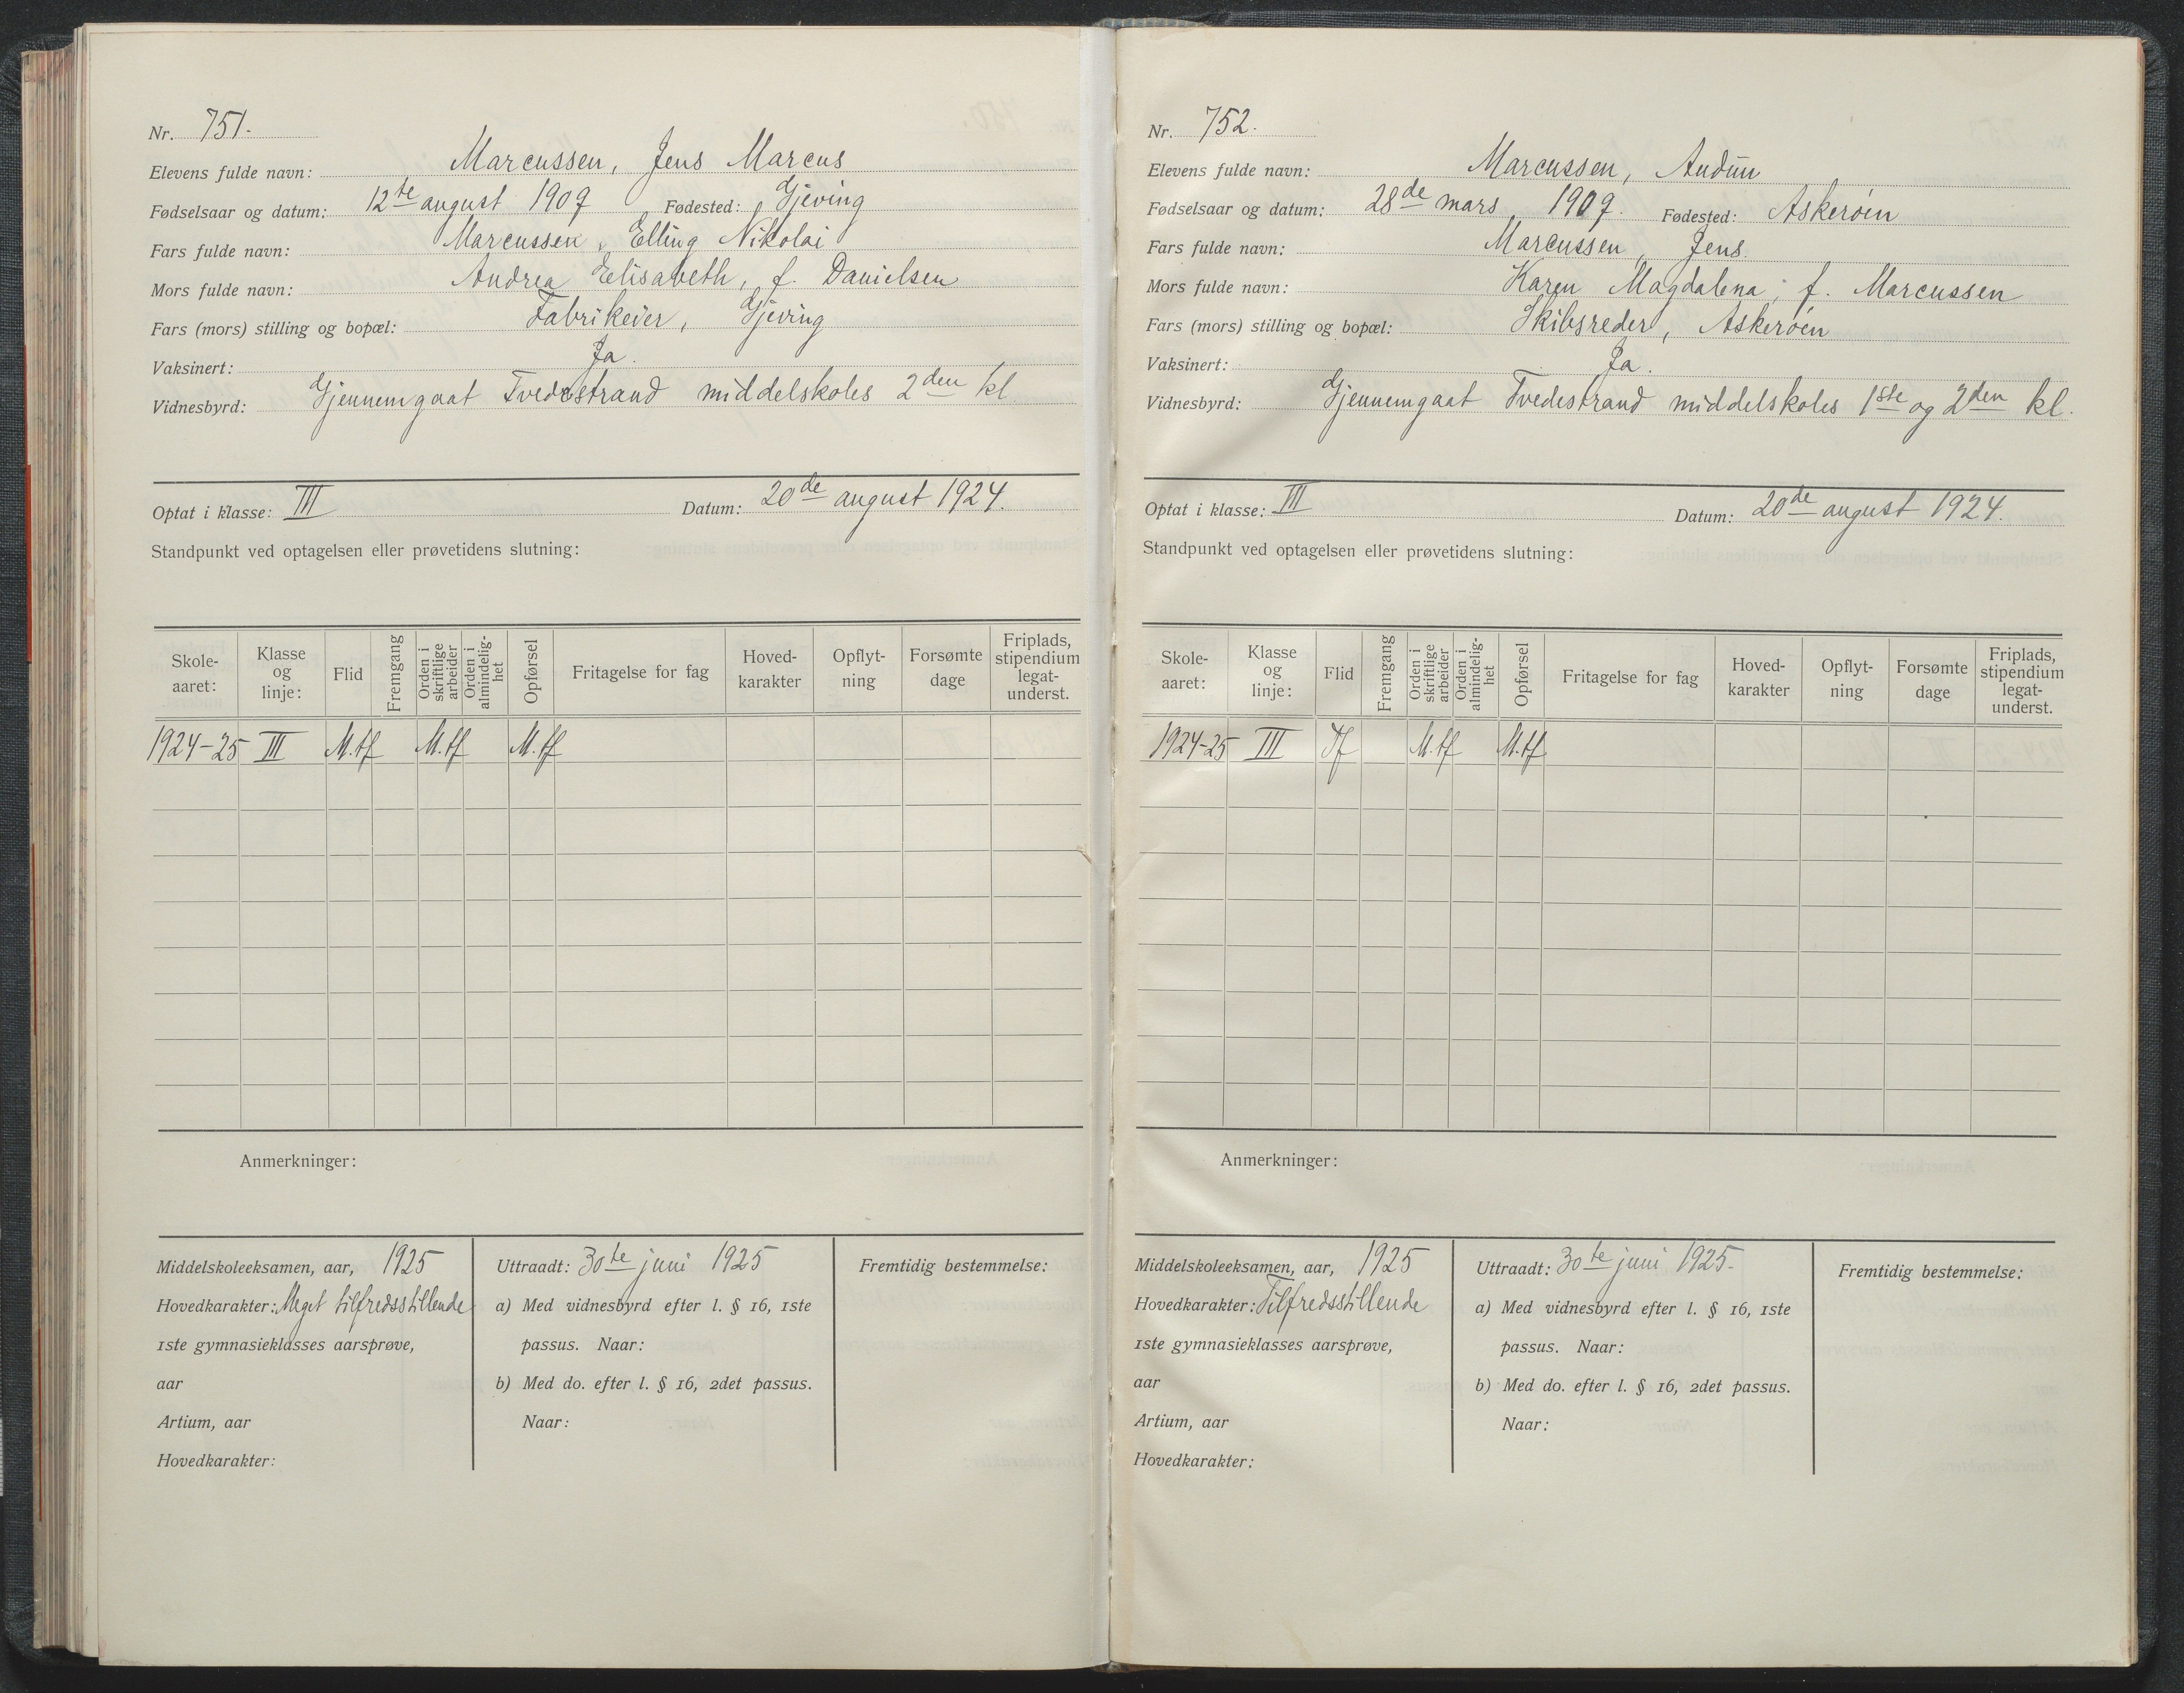 Nr. 751.
Elevens fulde navn: Marcussen, Jens Marcus
Fødselsaar og datum: 12te august 1909 Fødested: Gjeving
Fars fulde navn: Marcussen, Elling Nikolai
Mors fulde navn: Andrea Elisabeth, f. Danielsen
Fars (mors) stilling og bopæl: Fabrikeier, Gjeving
Vaksinert: Ja.
Vidnesbyrd: Gjennemgaat Tvedestrand middelskoles 2den kl.
Optat i klasse: III Datum: 20de august 1924.
Standpunkt ved optagelsen eller prøvetidens slutning:
Skole-aaret: Klasse og linje: Flid Fremgang Orden i skriftlige arbeider Orden i almindelig-het Opførsel Fritagelse for fag Hoved-karakter Opflyt-ning Forsømte dage Friplads, stipendium legat-underst.
1924-25 III M.tf M.tf M.tf
Anmerkninger:
Middelskoleeksamen, aar, 1925
Hovedkarakter: Meget tilfredsstillende
1ste gymnasieklasses aarsprøve,
aar
Artium, aar
Hovedkarakter:
Uttraadt: 30te juni 1925
a) Med vidnesbyrd efter l. § 16, 1ste
passus. Naar:
b) Med do. efter l. § 16, 2det passus.
Naar:
Fremtidig bestemmelse:
Nr. 752.
Elevens fulde navn: Marcussen, Audun
Fødselsaar og datum: 28de mars 1909. Fødested: Askerøen
Fars fulde navn: Marcussen, Jens.
Mors fulde navn: Karen Magdalena, f. Marcussen
Fars (mors) stilling og bopæl: Skibsreder, Askerøen
Vaksinert: Ja.
Vidnesbyrd: Gjennemgaat Tvedestrand middelskoles 1ste og 2den kl.
Optat i klasse: III Datum: 20de august 1924.
Standpunkt ved optagelsen eller prøvetidens slutning:
Skole-aaret: Klasse og linje: Flid Fremgang Orden i skriftlige arbeider Orden i almindelig-het Opførsel Fritagelse for fag Hoved-karakter Opflyt-ning Forsømte dage Friplads, stipendium legat-underst.
1924-25 III Tf M.tf M.tf
Anmerkninger:
Middelskoleeksamen, aar, 1925
Hovedkarakter: Tilfredsstillende
1ste gymnasieklasses aarsprøve,
aar
Artium, aar
Hovedkarakter:
Uttraadt: 30te juni 1925.
a) Med vidnesbyrd efter l. § 16, 1ste
passus. Naar:
b) Med do. efter l. § 16, 2det passus.
Naar:
Fremtidig bestemmelse: